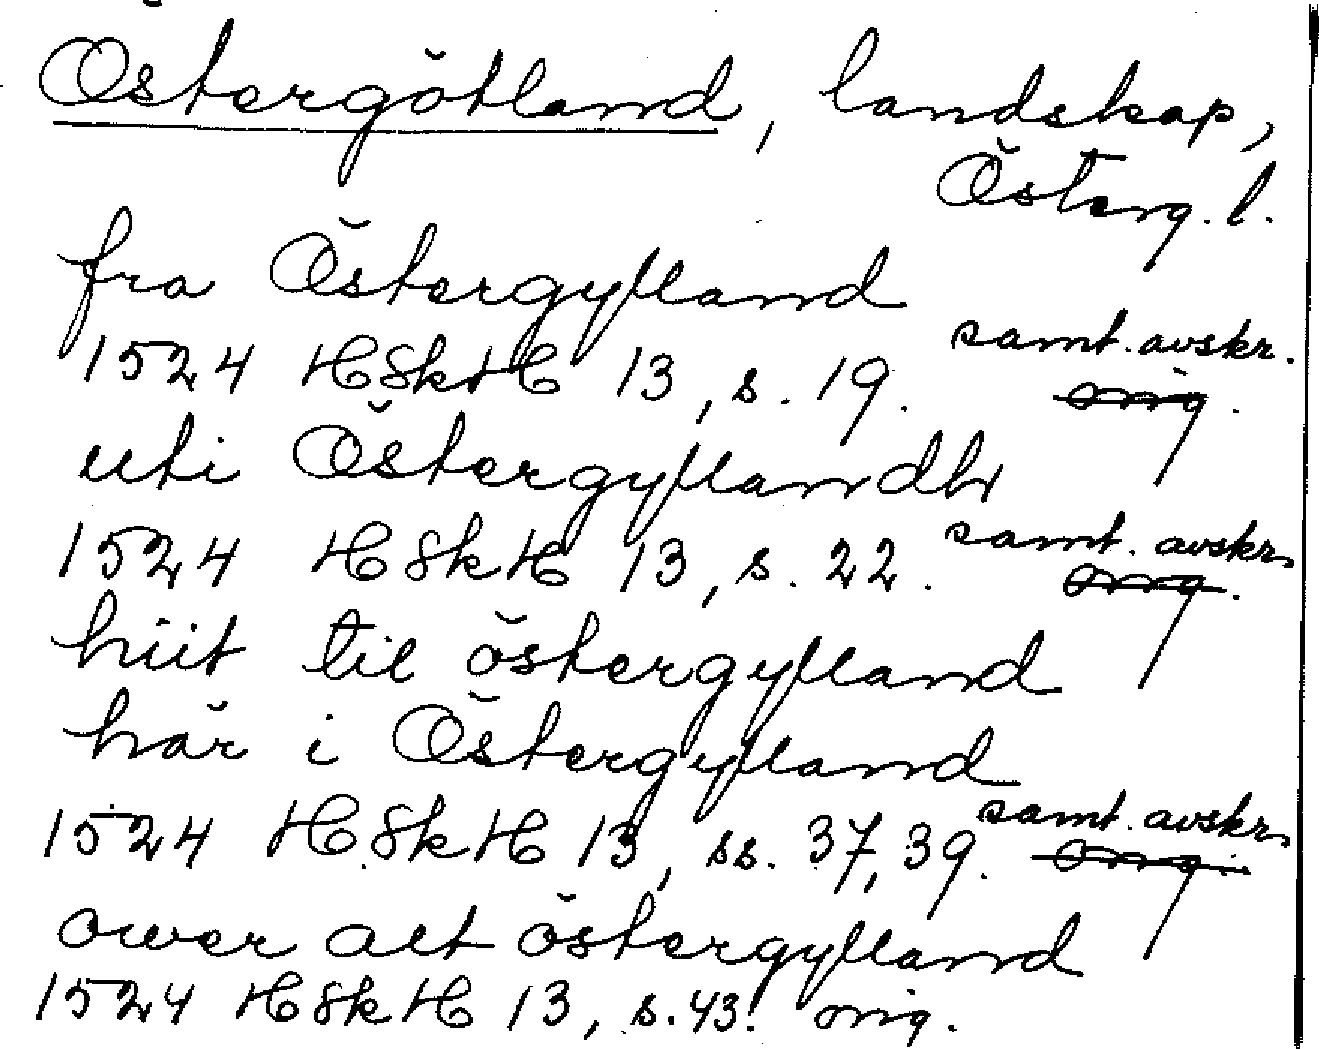 Östergötland, landskap,
Österg. l.
fra Östergylland
samt. avskr.
1524 HSkH 13, s. 19. orig.
uti Östergyllandh
samt. avskr.
1524 HSkH 13, s. 22. orig.
hiit til östergylland
här i Östergylland
samt. avskr.
1524 HSkH 13, ss. 37, 39. orig.
ower alt östergylland
1524 HSkH 13, s. 43. orig.